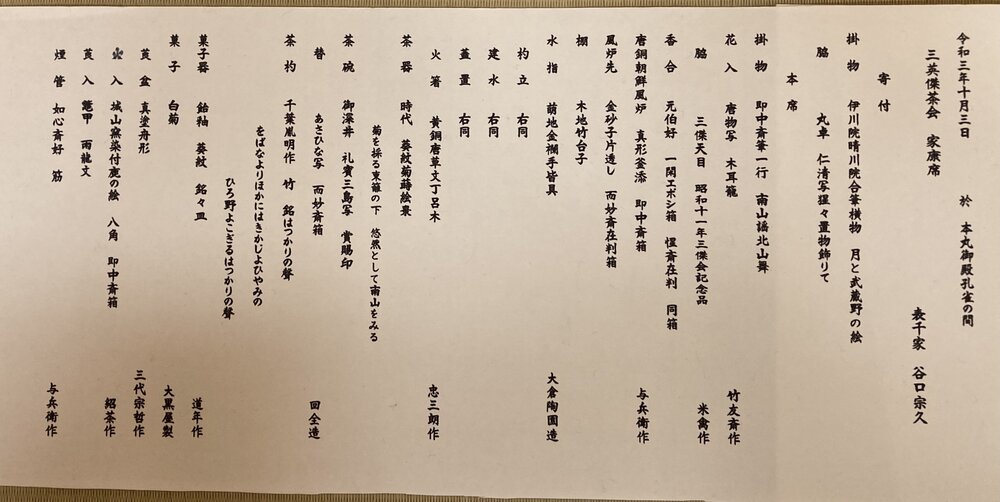 令和三年十月三日　於　本丸御殿孔雀の間
三英傑茶会　家康席
表千家　谷口宗久
寄付
掛物　伊川院晴川院合筆横物　月と武蔵野の絵
脇　丸卓　仁清写猩々置物飾りて
本席
掛物　即中斎筆一行　南山謡北山舞
花入　唐物写　木耳籠　竹友斎作
脇　三傑天目　昭和十一年三傑会記念品　米禽作
香合　元伯好　一閑エボシ箱　惺斎在判　同箱
唐銅朝鮮風炉　真形釜添　即中斎箱　与兵衛作
風炉先　金砂子片透し　而妙斎在判箱
棚　木地竹台子
水指　萌地金襴手皆具　大倉陶園造
杓立　右同
建水　右同
蓋置　右同
火箸　黄銅唐草文丁呂木　忠三朗作
茶器　時代　葵紋菊蒔絵棗
菊を採る東籬の下　悠然として南山をみる
茶碗　御深井　礼賓三島写　賞賜印
替　あさひな写　而妙斎箱　回全造
茶杓　千葉胤明作　竹　銘はつかりの聲
をばなよりほかにはきかじよひやみの
ひろ野よこぎるはつかりの聲
菓子器　飴釉　葵紋　銘々皿　道年作
菓子　白菊　大黒屋製
莨盆　真塗舟形　三代宗哲作
火入　城山窯染付鹿の絵　八角　即中斎箱　紹茶作
莨入　鼈甲　雨龍文
煙管　如心斎好　筋　与兵衛作